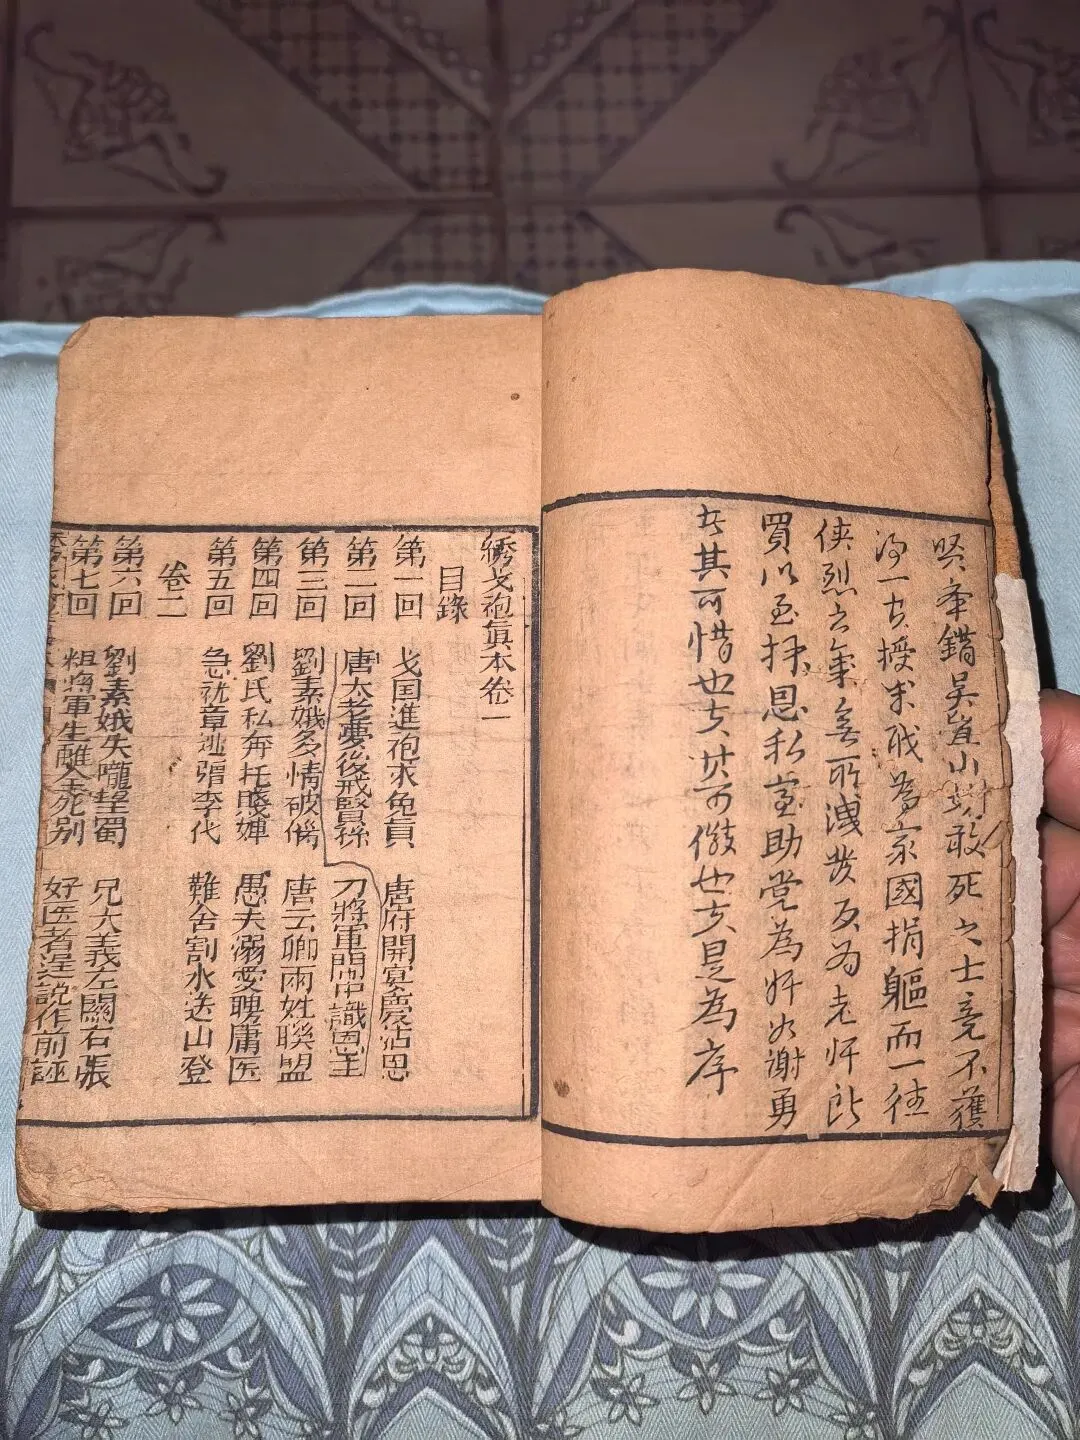 賢奉錯吳豈山坳敢死之士竟不獲
一古授求戎為家國捐軀而一往
俠烈之氣無所洩發反為老奸所
買以至抹恩私室助党為奸如謝勇
其可惜也夫其可傲也夫是為序
綉戈袍真本卷一
目錄
第一回 戈国進袍求免貢 唐府開宴慶沾恩
第二回 唐太老夢後戒賢孫 刀將軍閙中識恩主
第三回 劉素娥多情破僞 唐云卿雨姓聯盟
第四回 劉氏私奔托賤婢 愚夫溺愛聘庸医
第五回 急就章逃習李代 難舍割水送山登
卷二
第六回 劉素娥失隴望蜀 兄大義左關右張
第七回 粗將軍生離全死别 好医者逞說作前誣